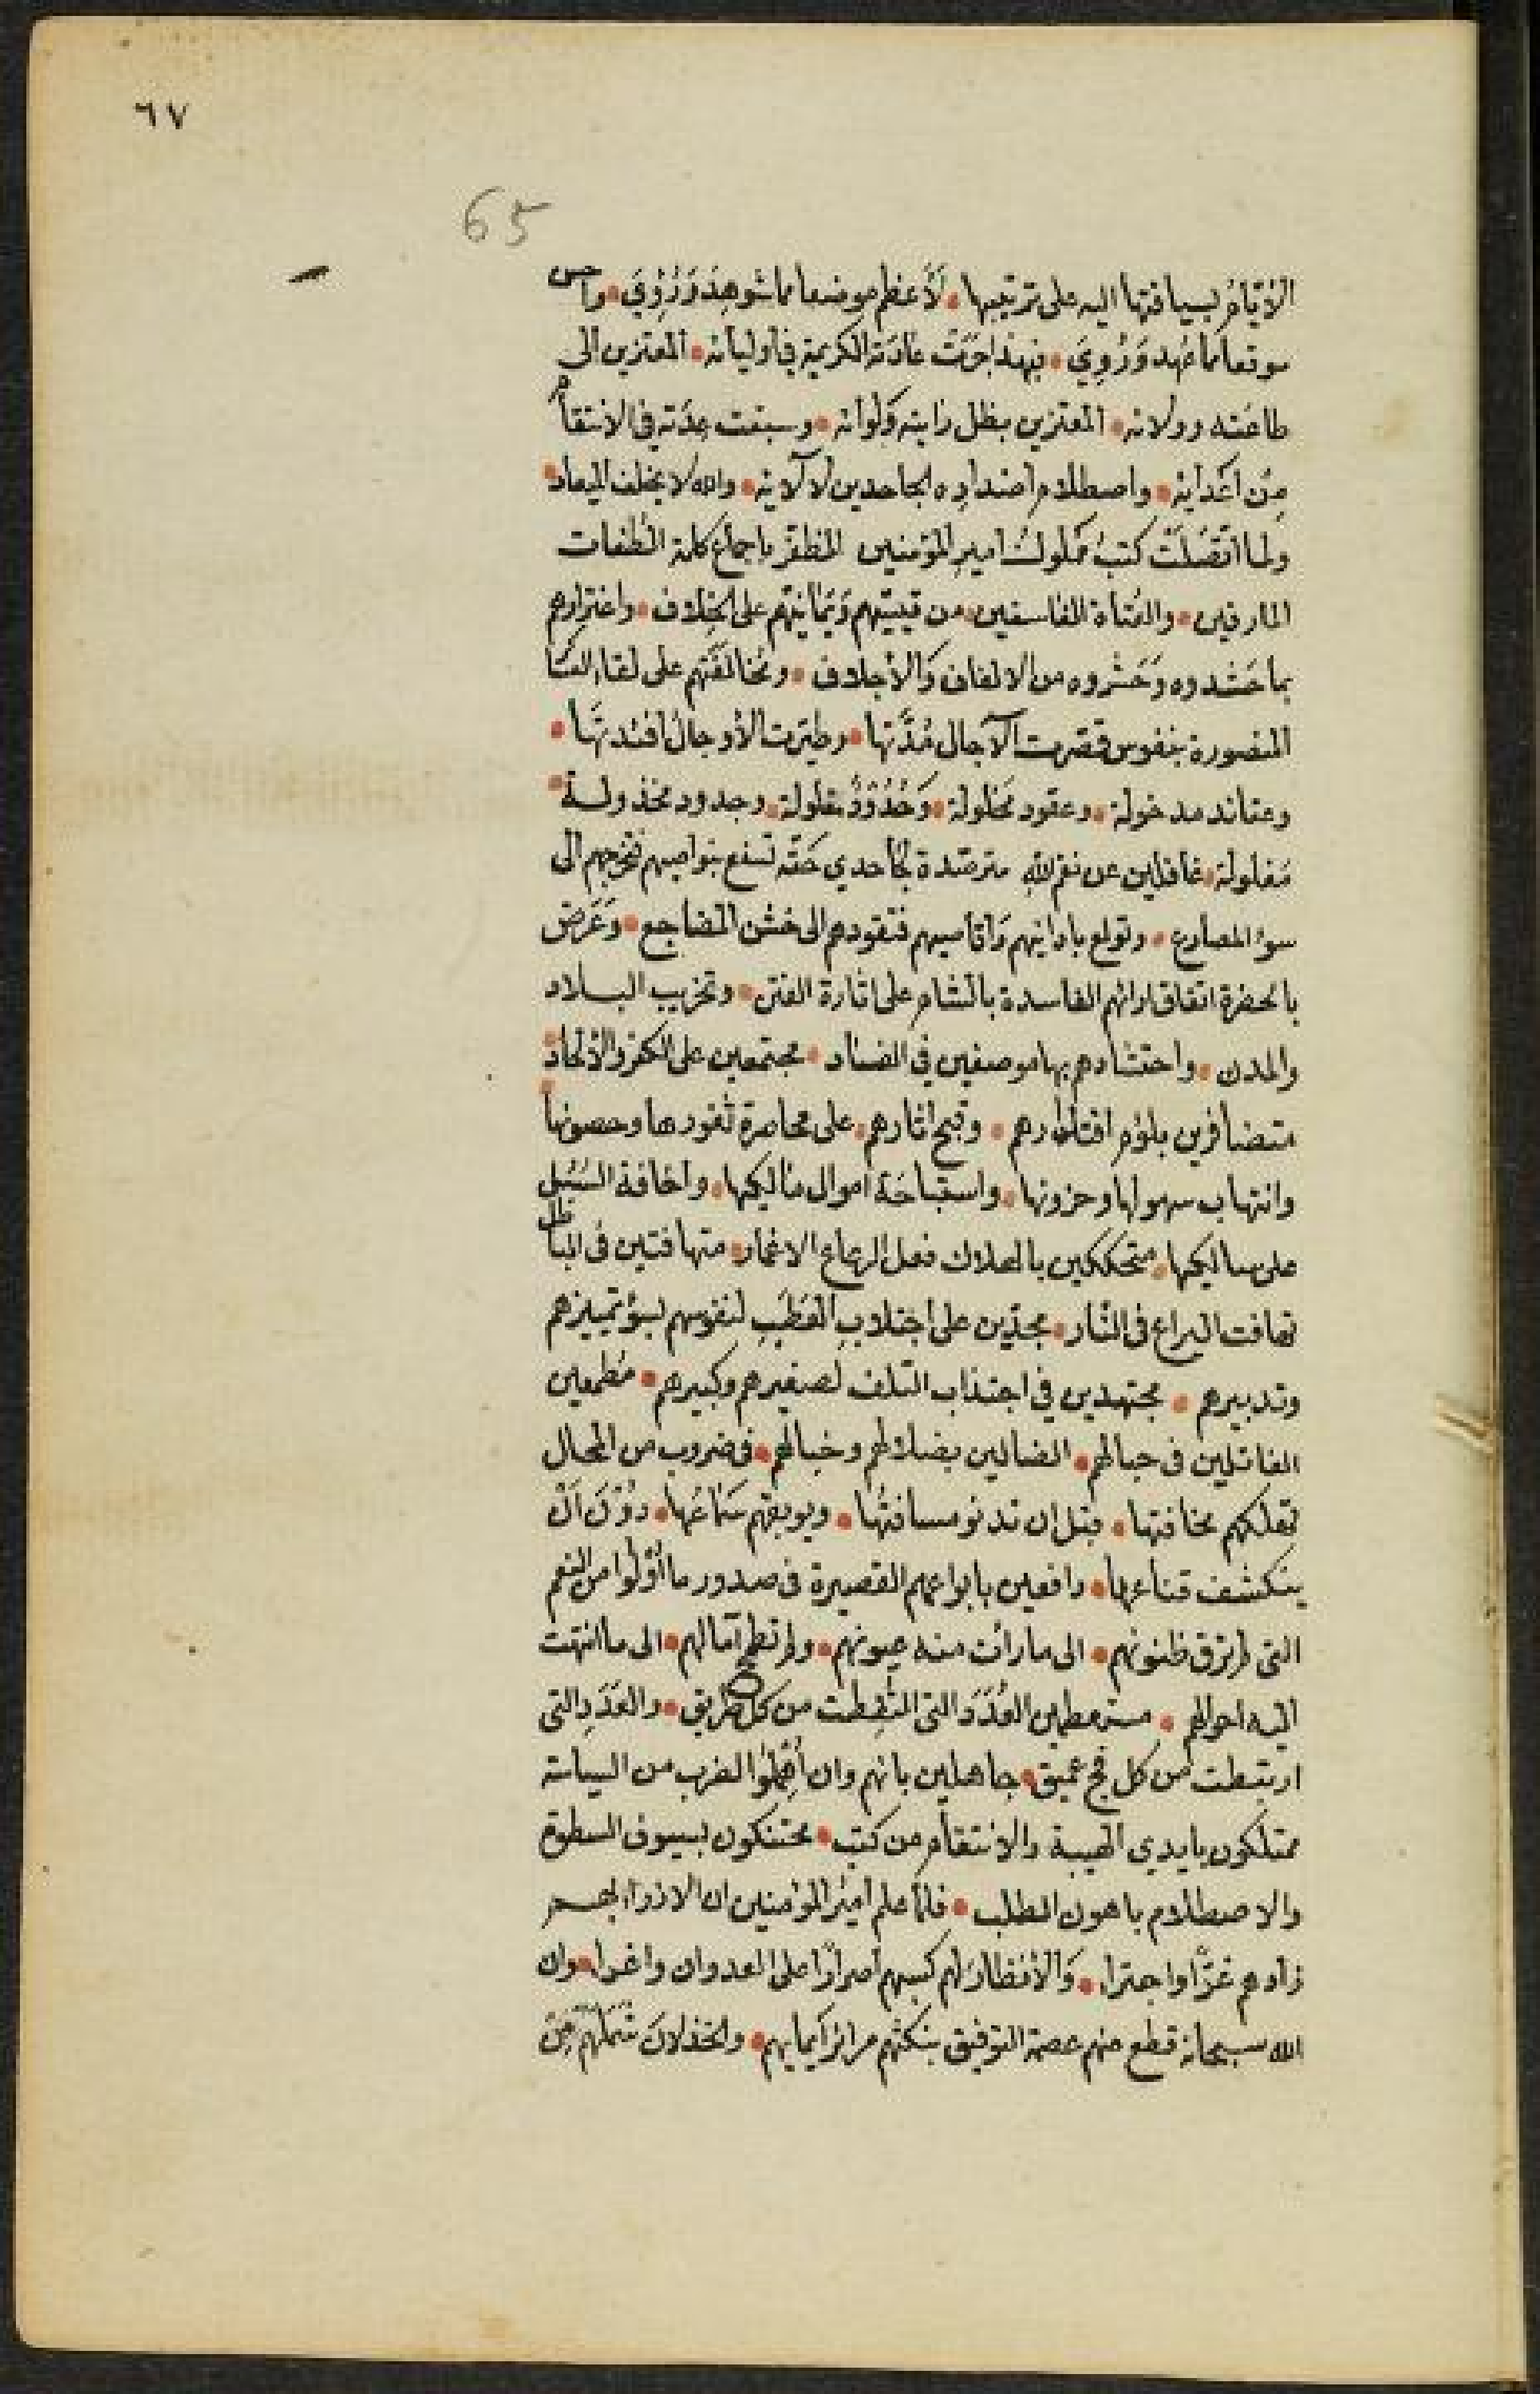 ٦٧
65
الايام بسياقتها اليه على ترتيبها • لأعظم موضعا مما شوهد ورُؤِيَ • واحسن
موقعا مما عُهد وَرُوِيَ • فبهذا جَرَت عادته الكريمة في أوليائه • المعتزين الى
طاعته وولائه • المعتزين بظل رايته ولوائه • وسبقت عِدَته في الانتقام
مِن أعدائه • واصطلام اضداده الجاحدين لآلائه • والله لا يخلف الميعاد •
ولما اتصَلَت كتبُ مملوك امير المؤمنين المظفر باجماع كلمة الطغات
المارقين • والعتاة الفاسقين • من قيسيتهم وَيمانيتهم على الخلاف • واغترارهم
بما حَشدوه وَحَشروه من الالفاف وَالأجلاف • على لقاء العسا
المنصورة بنفوس قصرت الآجال مُدَّتها • وطيرت الأوجال افئدتَها •
وعقائد مدخولة • وعقود محلولة • وَحُدُودٌ مفلولة • وجدود مخذولة •
مغلولة • غافلين عن نقم الله مترصدة لجاحدي حَقّه تسفع بنواصيهم فتخرجهم الى
سوء المصارع • وتولع بادانيهم وَاقاصيهم فتقودهم الى خشن المضاجع • وَعَرض
بالحضرة اتفاق ارائهم الفاسدة بالشام على اثارة الفتن • وتخريب البلاد
والمدن • واحتشادهم بها موضعين في الفساد • مجتمعين على الكفر والالحاد •
متضافرين بلؤم • وقبح اثارهم • على محاصرة ثغورها وحصونها
وانتهاب سهولها وحزونها • واستباحَة اموال مَاليكها • واخافة السُبُل
على سالكيها • متحككين بالهلاك فعل الرعاع الاغمار • متهافتين في الباطل
تهافت اليراع في النّار • مجدّين على اجتلابِ العَطَبِ لنفوسهم لسوء تمييزهم
وتدبيرهم • مجتهدين في اجتذاب التلف لصغيرهم وكبيرهم • مُطمعين
في حبالهم • الضالين بضلالهم وخبالهم • في ضروب من المحال
تهلكهم مخافتها • قبل ان تدنو مسافتُها • ويوبقهم سَمَاعُها • دُوْنَ اَنْ
ينكشف قناعها • دافعين بابواعهم القصيرة في صدور ما أُوْلُوا من النعم
التي لم ترق ظنونهم • الى مارأت منه عيونهم • ولم تطمح آمالهم • الى ما انتهت
اليه احوالهم • مستعظمين العُدَدَ التي التُقِطت من كل طريق • والعَدَدِ التي
ارتبطت من كل فج عميق • جاهلين بانهم وان أُهْمِلُوا لضرب من السياسة
ممتلكون بايدي الهيبة والانتقام من كثب • محتنكون بسيوف السطوة
والاصطلام باهون الطلب • فلمّا علم اميرُ المؤمنين ان الازراء بهم
زادهم غرًّا واجتراء • وَالأنظار لهم كسبهم اصرارًا على العدوان واغراء • وان
الله سبحانه قطع منهم عصمة التوفيق بنكثهم مرائر ايمانهم • والخذلان شَمَلَهُم عَنْ